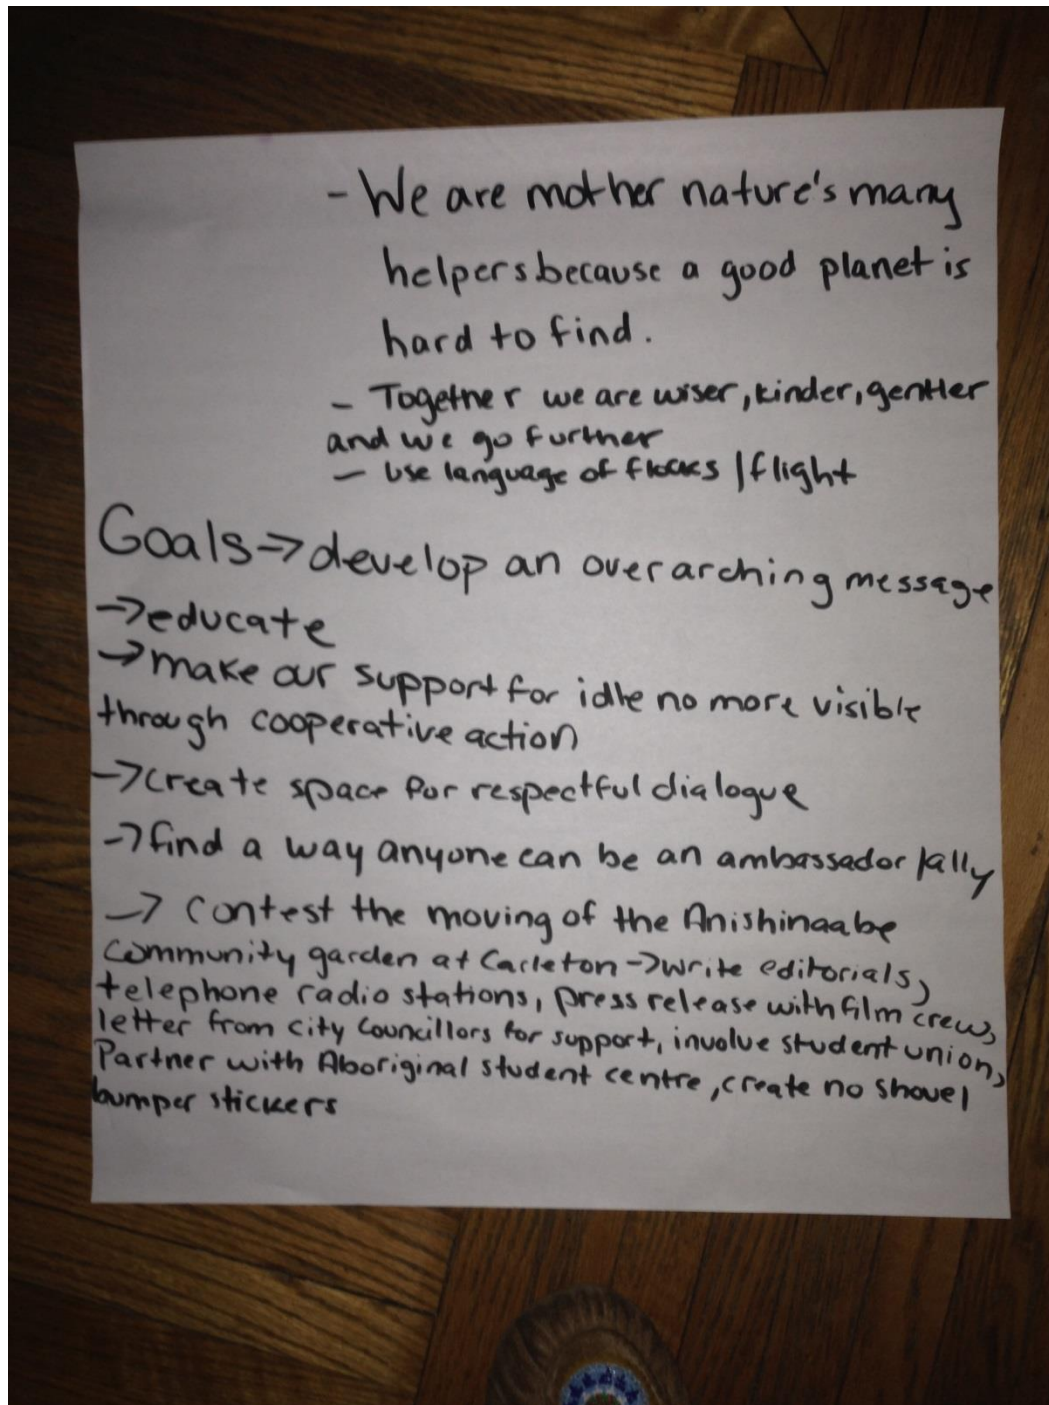 - We are mother nature's many
helpers because a good planet is
hard to find.
- Together we are wiser, kinder, gentler
and we go further
- Use language of flocks / flight
Goals → develop an overarching message
→ educate
→ make our support for idle no more visible
through cooperative action
→ create space for respectful dialogue
→ find a way anyone can be an ambassador / ally
→ contest the moving of the Anishinaabe
community garden at Carleton → write editorials,
telephone radio stations, press release with film crew,
letter from city councillors for support, involve student union,
Partner with Aboriginal student centre, create no shovel
bumper stickers